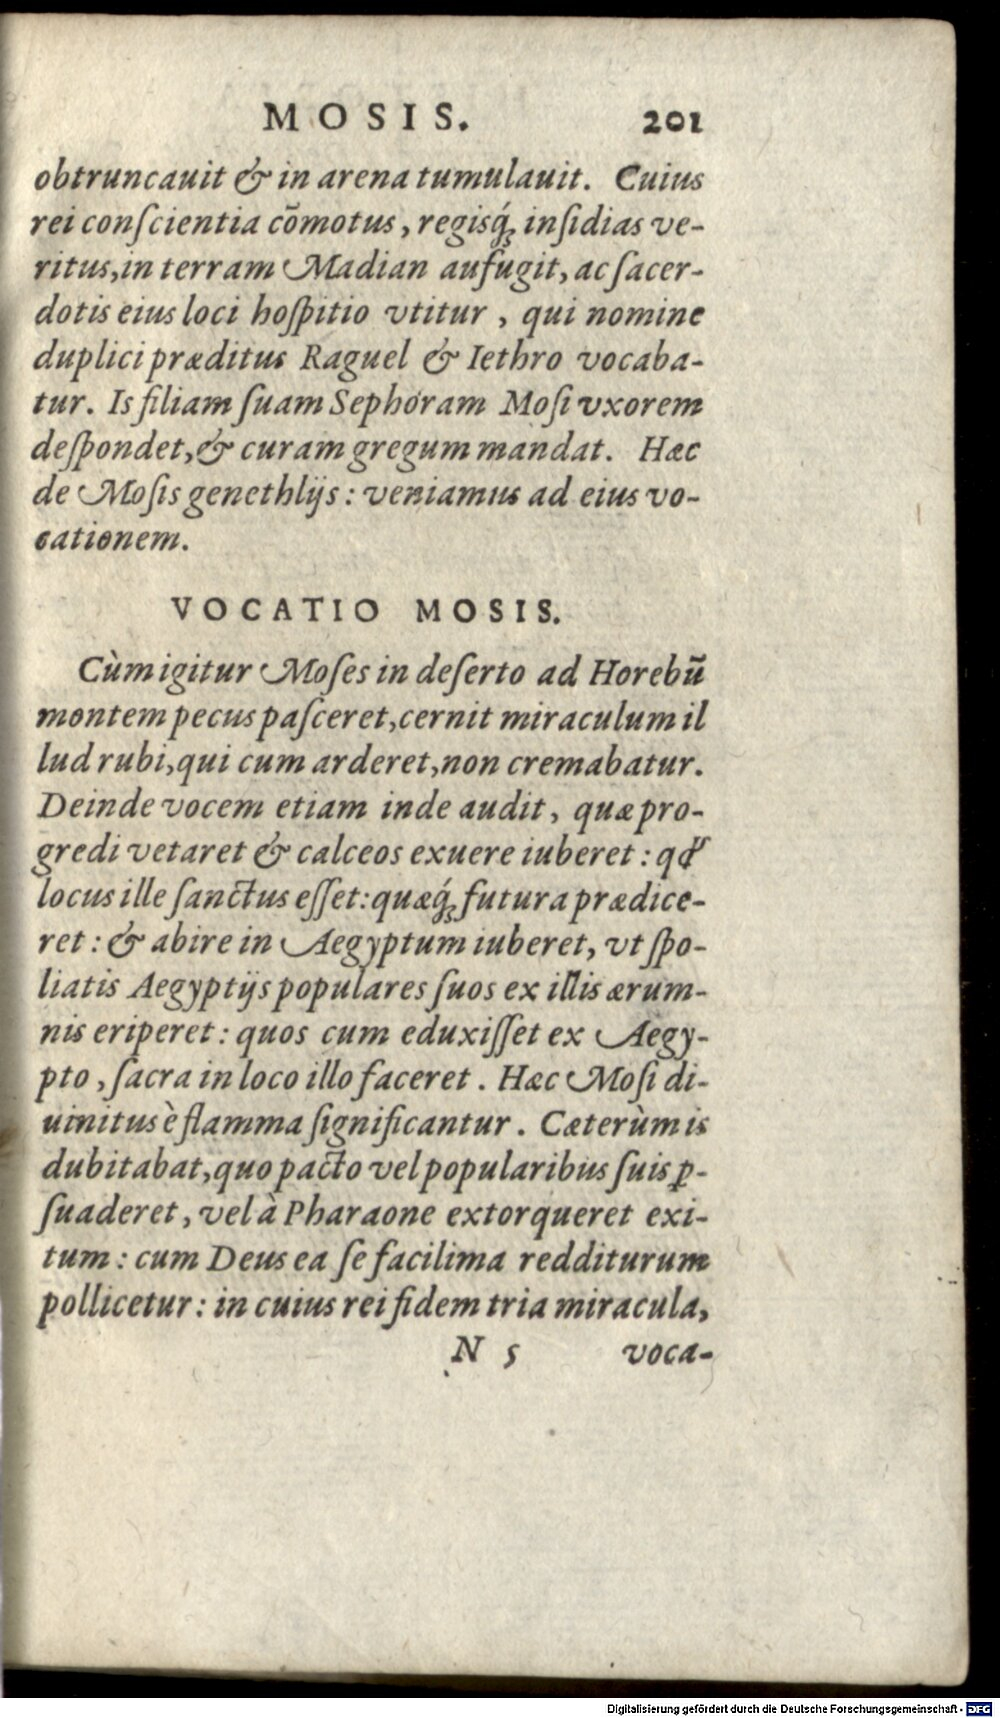 MOSIS. 201
obtruncauit & in arena tumulauit. Cuius
rei conſcientia cōmotus, regisq́; inſidias ve-
ritus, in terram Madian aufugit, ac ſacer-
dotis eius loci hoſpitio vtitur, qui nomine
duplici præditus Raguel & Iethro vocaba-
tur. Is filiam ſuam Sephóram Moſi vxorem
deſpondet, & curam gregum mandat. Hæc
de Moſis genethlijs: veniamus ad eius vo-
cationem.
VOCATIO MOSIS.
Cùm igitur Moſes in deſerto ad Horebū
montem pecus paſceret, cernit miraculum il
lud rubi, qui cum arderet, non cremabatur.
Deinde vocem etiam inde audit, quæ pro-
gredi vetaret & calceos exuere iuberet: qđ
locus ille ſanctus eſſet: quæq́; futura prædice-
ret: & abire in Aegyptum iuberet, vt ſpo-
liatis Aegyptijs populares ſuos ex illis ærum-
nis eriperet: quos cum eduxiſſet ex Aegy-
pto, ſacra in loco illo faceret. Hæc Moſi di-
uinitus è flamma ſignificantur. Cæterùm is
dubitabat, quo pacto vel popularibus ſuis ꝑ-
ſuaderet, vel à Pharaone extorqueret exi-
tum: cum Deus ea ſe facilima redditurum
pollicetur: in cuius rei fidem tria miracula,
N 5 voca-
Digitalisierung gefördert durch die Deutsche Forschungsgemeinschaft - DFG